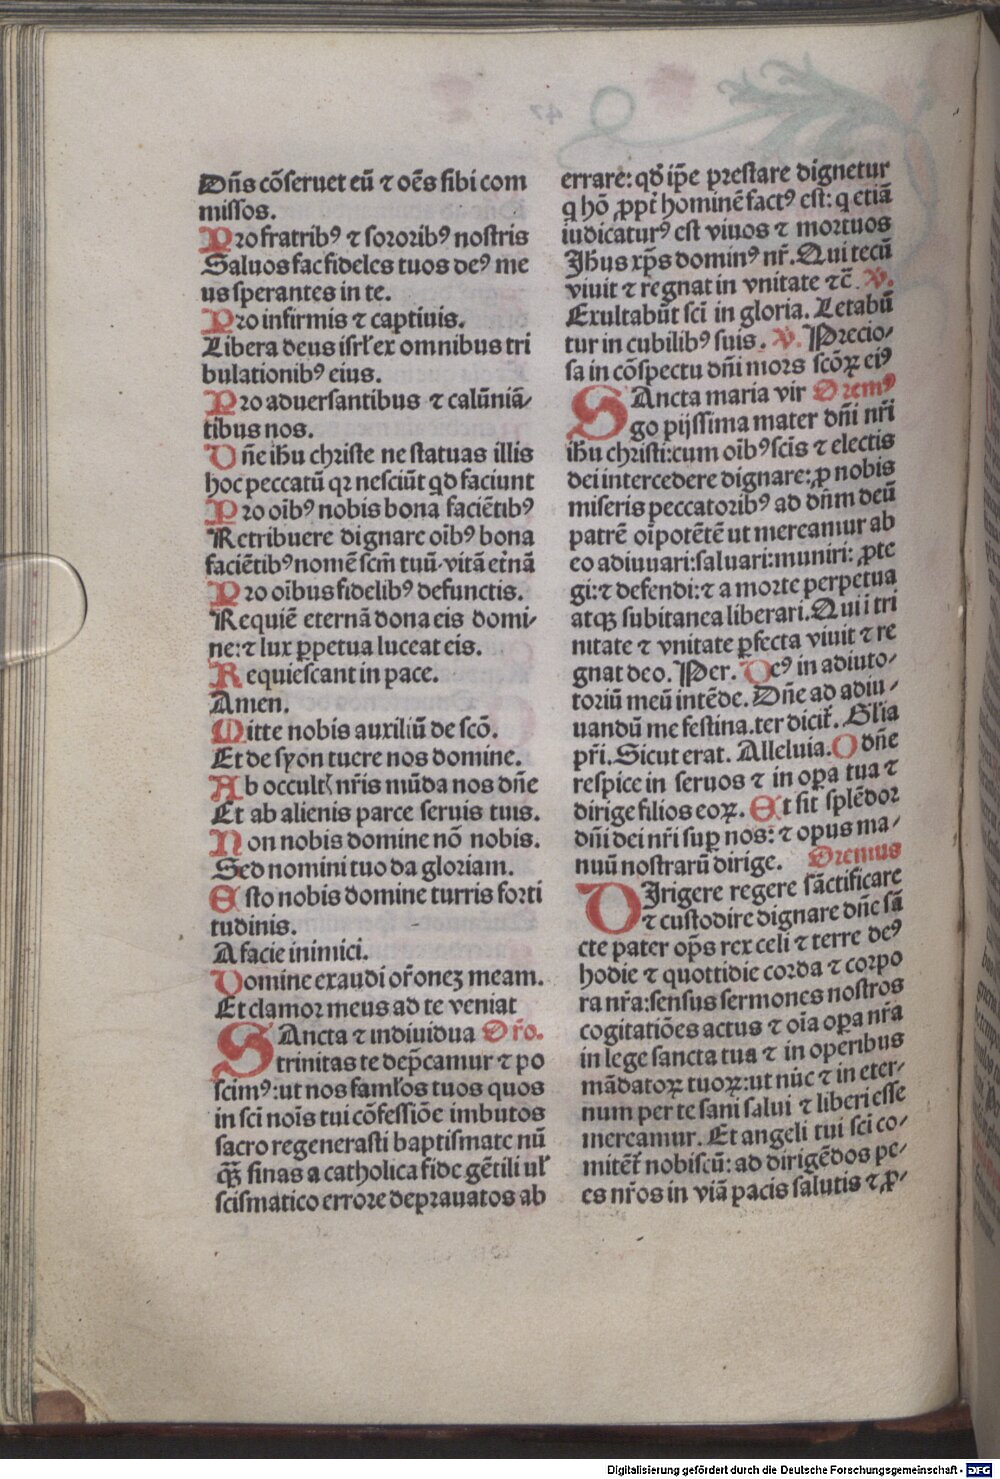 Dñs cõseruet eũ ⁊ oẽs sibi com
missos.
Pro fratribꝰ ⁊ sororibꝰ nostris
Saluos fac fideles tuos deꝰ me
us sperantes in te.
Pro infirmis ⁊ captiuis.
Libera deus isrł ex omnibus tri
bulationibꝰ eius.
Pro aduersantibus ⁊ calũniã-
tibus nos.
Dñe ihu christe ne statuas illis
hoc peccatũ qꝛ nesciũt qd faciunt
Pro oĩbꝰ nobis bona faciẽtibꝰ
Retribuere dignare oĩbꝰ bona
faciẽtibꝰ nomẽ scm̃ tuũ·vitã et̃nã
Pro oĩbus fidelibꝰ defunctis.
Requiẽ eternã dona eis domi-
ne:⁊ lux ꝑpetua luceat eis.
Requiescant in pace.
Amen.
Mitte nobis auxiliũ de scõ.
Et de syon tuere nos domine.
Ab occult̃ nr̃is mũda nos dñe
Et ab alienis parce seruis tuis.
Non nobis domine nõ nobis.
Sed nomini tuo da gloriam.
Esto nobis domine turris forti
tudinis.
A facie inimici.
Domine exaudi or̃onez meam.
Et clamor meus ad te veniat
SAncta ⁊ indiuidua Or̃o.
trinitas te dep̃camur ⁊ po
scimꝰ:ut nos famłos tuos quos
in sci noĩs tui cõfessiõe imbutos
sacro regenerasti baptismate nũ
qꝫ̃ sinas a catholica fide gẽtili uł
scismatico errore deprauatos ab
errare: qd̃ ip̃e prestare dignetur
q hõ ꝓpt̃ hominẽ factꝰ est: q etiã
iudicaturꝰ est viuos ⁊ mortuos
Jhũs xp̃s dominꝰ nr̃. Qui tecũ
viuit ⁊ regnat in vnitate ⁊c̃. ℣.
Exultabũt sci in gloria. Letabũ
tur in cubilibꝰ suis. ℣. Precio-
sa in cõspectu dñi mors scõꝝ eiꝰ
SAncta maria vir Oremꝰ
go pijssima mater dñi nr̃i
ihũ christi:cum oĩbꝰ scis ⁊ electis
dei intercedere dignare:ꝓ nobis
miseris peccatoribꝰ ad dñm deũ
patrẽ oĩpotẽtẽ ut mereamur ab
eo adiuuari:saluari:muniri: ꝓte
gi:⁊ defendi:⁊ a morte perpetua
atqꝫ subitanea liberari. Qui i tri
nitate ⁊ vnitate ꝑfecta viuit ⁊ re
gnat deo. Per. Deꝰ in adiuto-
toriũ meũ intẽde. Dñe ad adiu-
uandũ me festina.ter dicit̃. Glia
pr̃i. Sicut erat. Alleluia. O dñe
respice in seruos ⁊ in oꝑa tua ⁊
dirige filios eoꝝ. Et sit splẽdor
dñi dei nr̃i suꝑ nos: ⁊ opus ma-
nuũ nostrarũ dirige. Oremus
DIrigere regere sãctificare
⁊ custodire dignare dñe sã
cte pater op̃s rex celi ⁊ terre deꝰ
hodie ⁊ quottidie corda ⁊ corpo
ra nr̃a:sensus sermones nostros
cogitatiões actus ⁊ oĩa oꝑa nr̃a
in lege sancta tua ⁊ in operibus
mãdatoꝝ tuoꝝ:ut nũc ⁊ in eter-
num per te sani salui ⁊ liberi esse
mereamur. Et angeli tui sci co-
mitẽt̃ nobiscũ: ad dirigẽdos pe-
es nr̃os in viã pacis salutis ⁊ ꝓ-
Digitalisierung gefördert durch die Deutsche Forschungsgemeinschaft - DFG